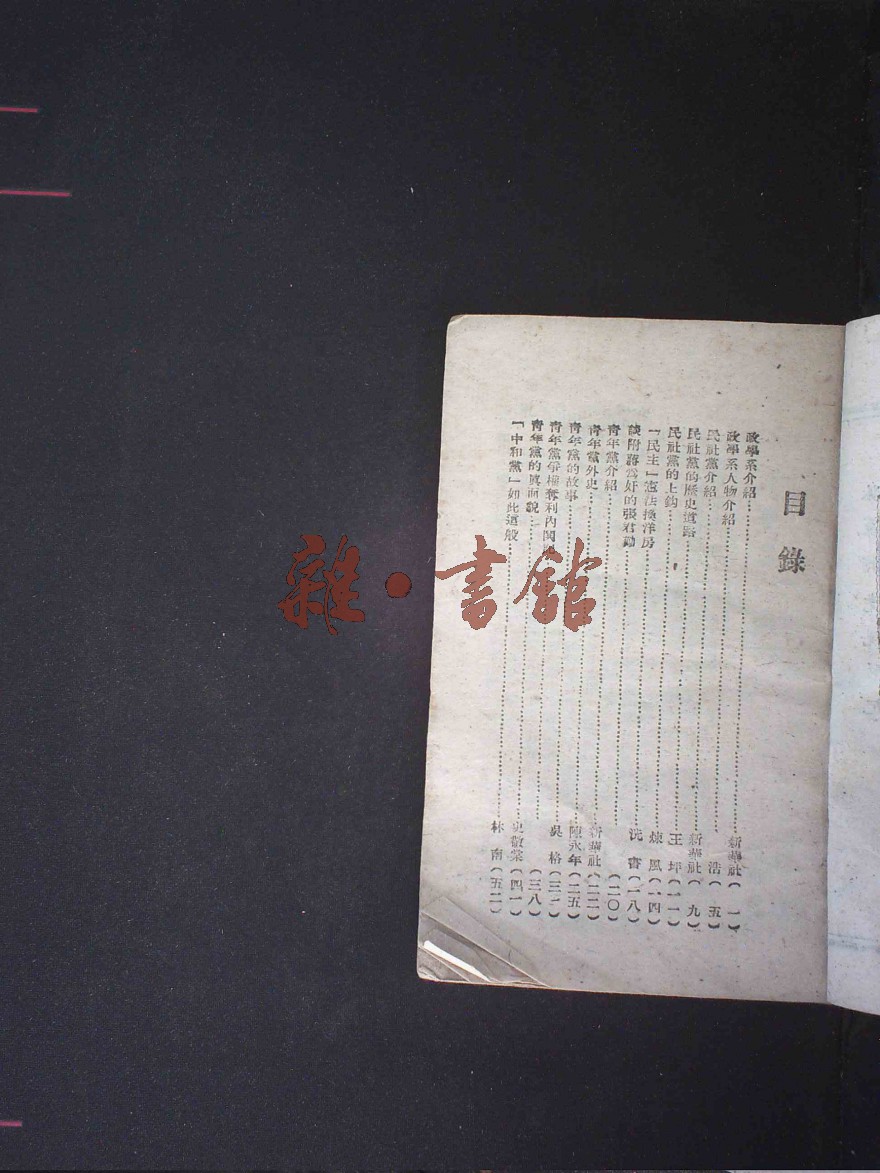 目錄
政學系介紹……新華社（一）
政學系人物介紹……浩（五）
民社黨介紹……新華社（九）
民社黨的歷史道路……王坪（一一）
民社黨的上鈎……煉風（一四）
「民主」憲法換洋房……冼（一八）
談附蔣為奸的張君勱……（二〇）
青年黨介紹……新華社（二二）
青年黨外史……陳永年（二五）
青年黨的故事……吳格（三二）
青年黨爭權奪利內鬨……（三八）
青年黨的眞面貌……史敬棠（四一）
「中和黨」如此這般……林南（五二）
雜·書館